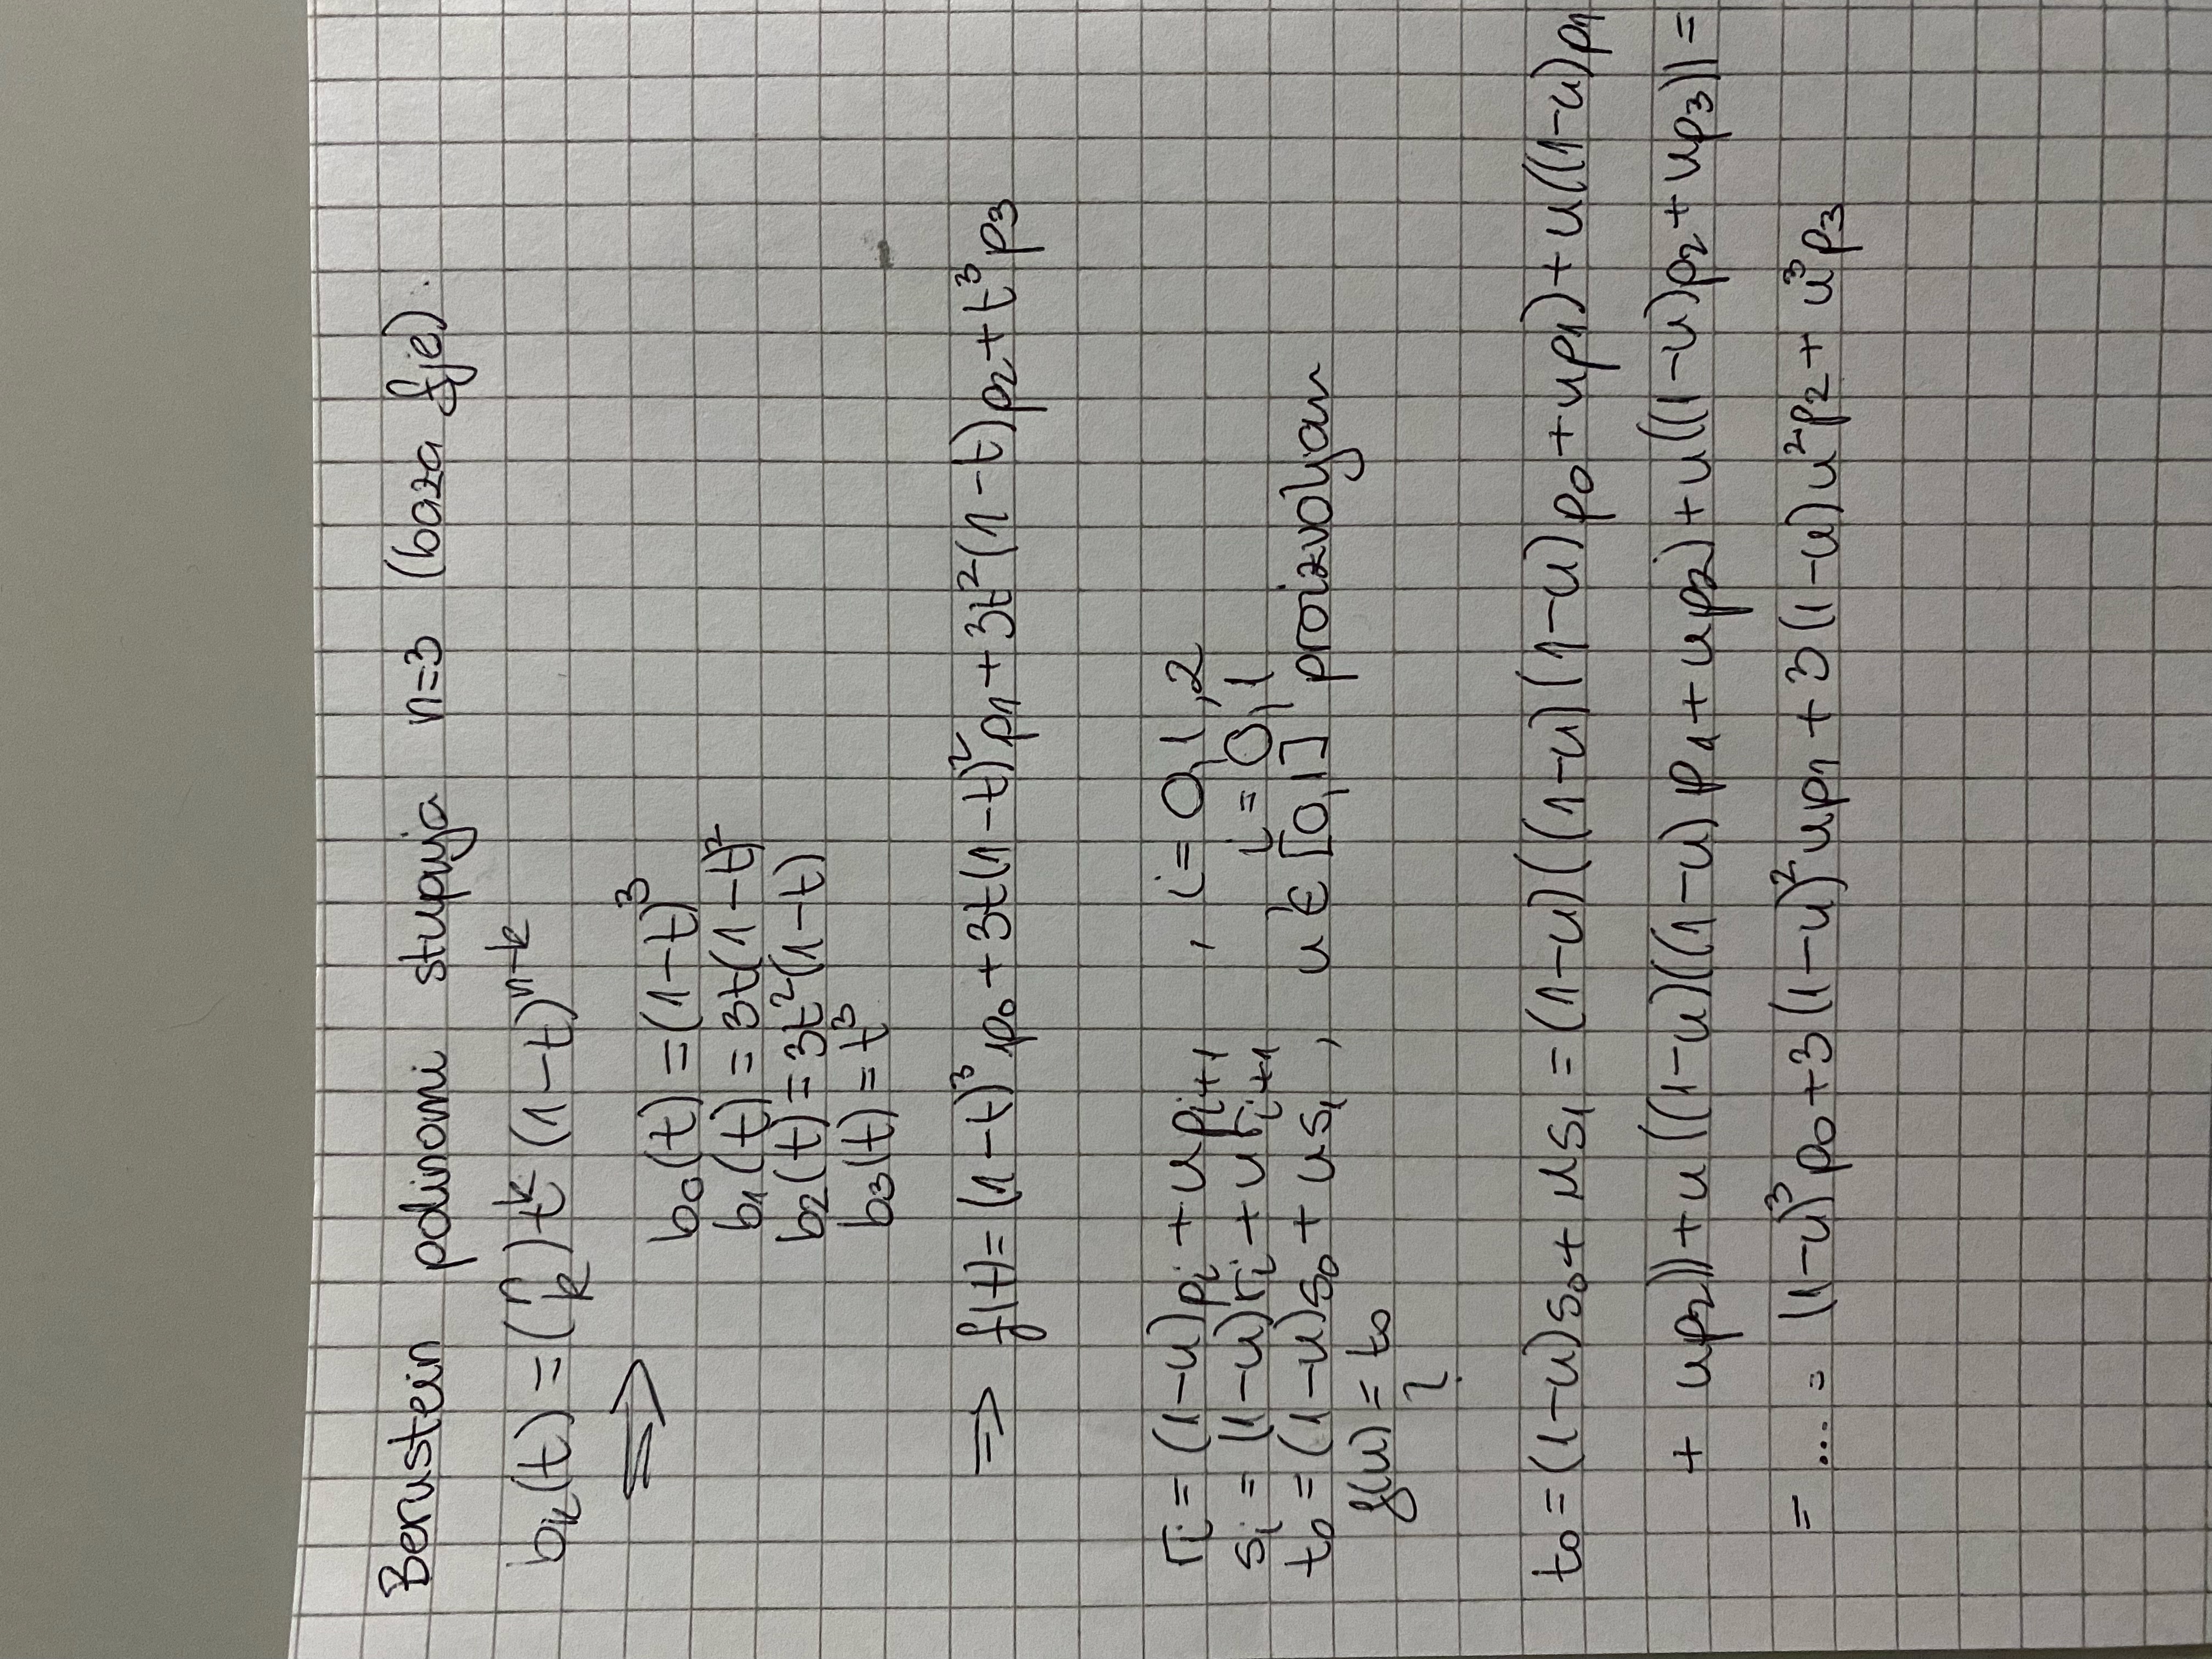 Bernstein polinomi stupnja n=3 (baza fje).
b_k(t) = (n k) t^k (1-t)^{n-k}
⟹
b_0(t) = (1-t)^3
b_1(t) = 3t(1-t)^2
b_2(t) = 3t^2(1-t)
b_3(t) = t^3
⟹ f(t) = (1-t)^3 p_0 + 3t(1-t)^2 p_1 + 3t^2(1-t)p_2 + t^3 p_3
r_i = (1-u)p_i + u p_{i+1} , i = 0,1,2
s_i = (1-u)r_i + u r_{i+1} , i = 0,1
t_0 = (1-u)s_0 + u s_1 , u ∈ [0,1] proizvoljan
f(u) = t_0
?
t_0 = (1-u)s_0 + u s_1 = (1-u)((1-u)(1-u)p_0 + u p_1) + u((1-u)p_1
+ u p_2)) + u((1-u)((1-u)p_1 + u p_2) + u((1-u)p_2 + u p_3)) =
= ... = (1-u)^3 p_0 + 3(1-u)^2 u p_1 + 3(1-u)u^2 p_2 + u^3 p_3